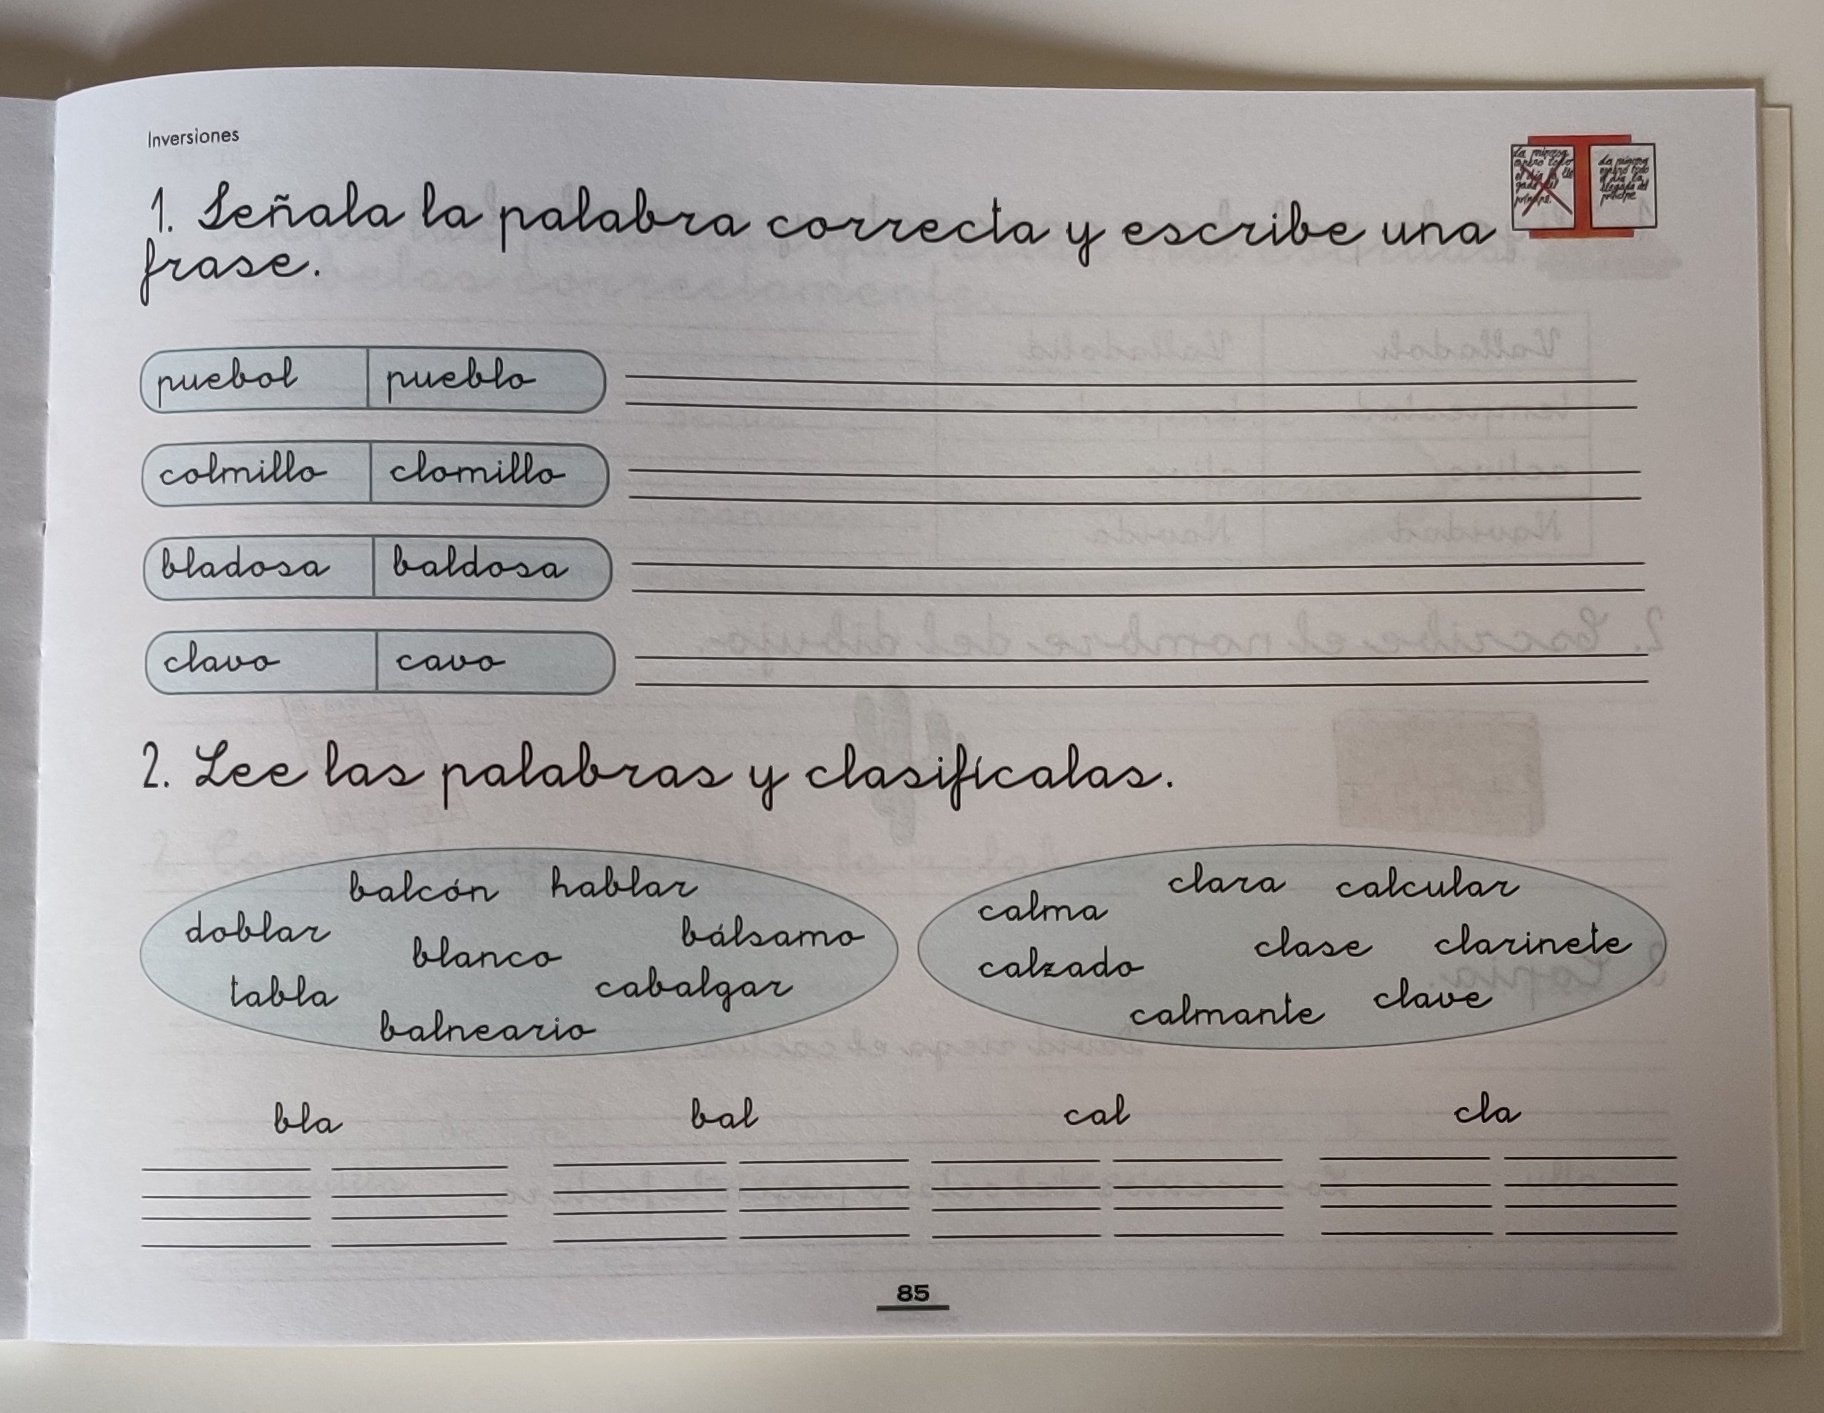 Inversiones
1. Señala la palabra correcta y escribe una
frase.
puebol pueblo
colmillo clomillo
bladosa baldosa
clavo cavo
2. Lee las palabras y clasifícalas.
balcón hablar
doblar
blanco
bálsamo
tabla
cabalgar
balneario
clara calcular
calma
clase clarinete
calzado
calmante clave
bla bal cal cla
85